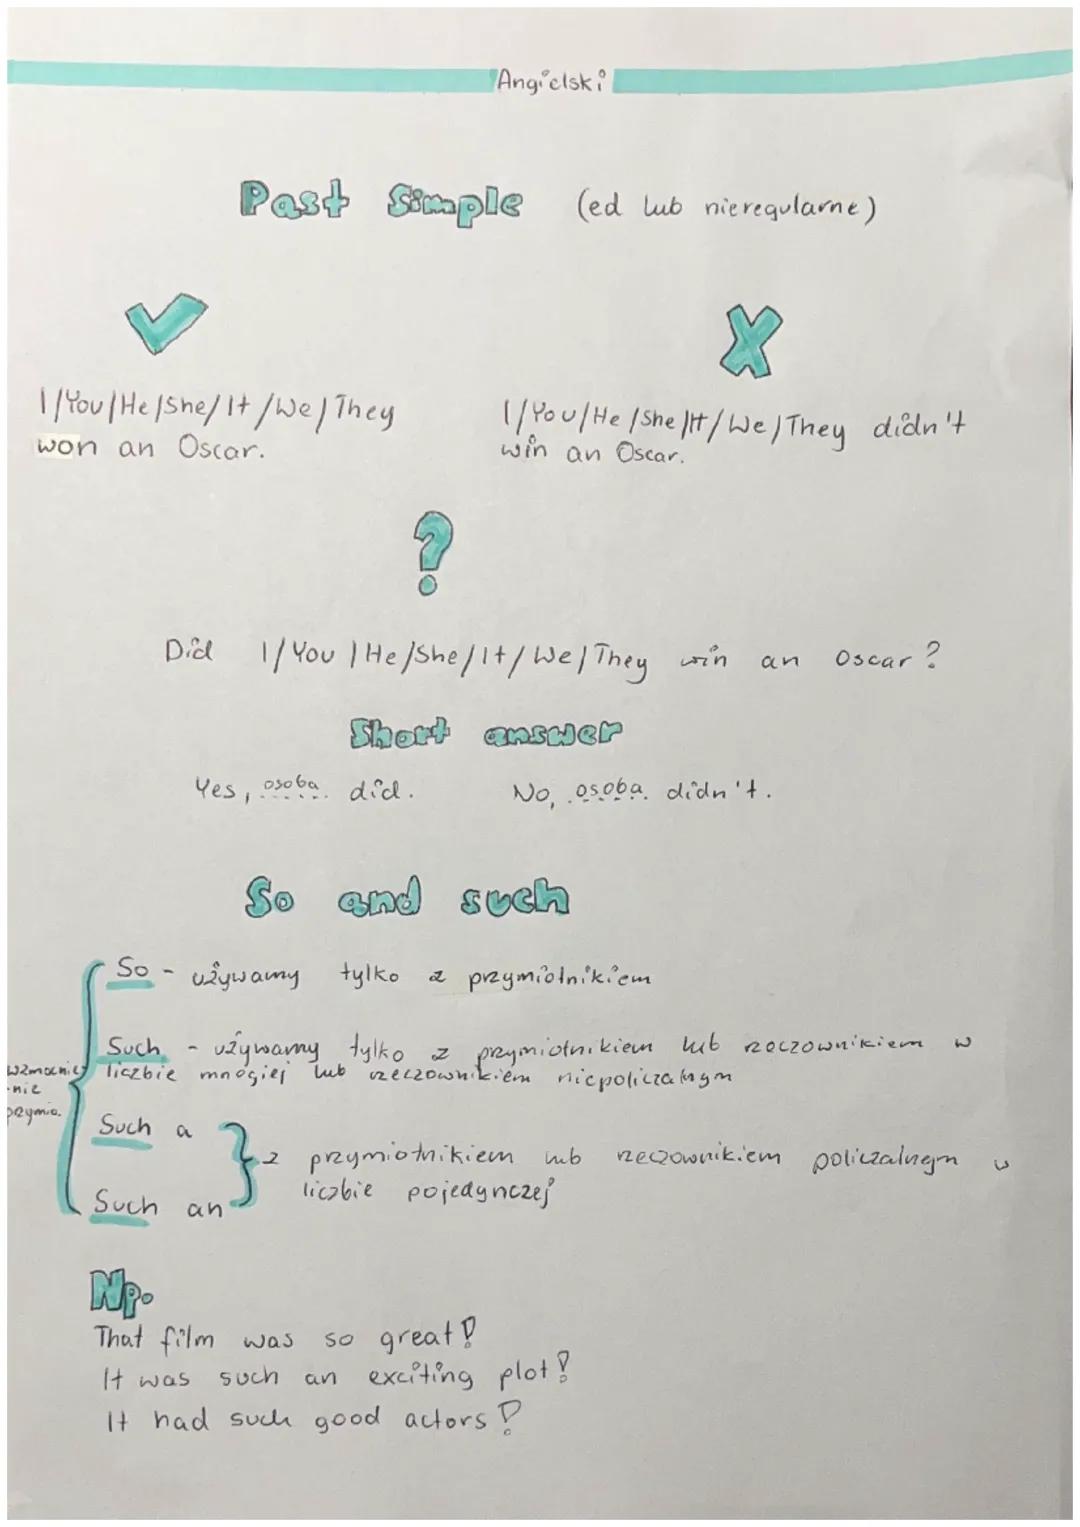 Angielski
Past Simple (ed lub nieregularne)
I/You/He/She/It/We/They
won an Oscar.
I/You/He/She/It/We/They didn't
win an Oscar.
?
Did I/You/He/She/It/We/They win an Oscar?
Short answer
Yes, osoba did.
No, osoba didn't.
So and such
So - używamy tylko z przymiotnikiem
Such - używamy tylko z przymiotnikiem lub rzeczownikiem w
liczbie mnogiej lub rzeczownikiem niepoliczalnym
wzmocnie
-nie
przymio.
Such a
Such an
z przymiotnikiem lub rzeczownikiem policzalnym w
liczbie pojedynczej
Np.
That film was so great!
It was such an exciting plot!
It had such good actors!